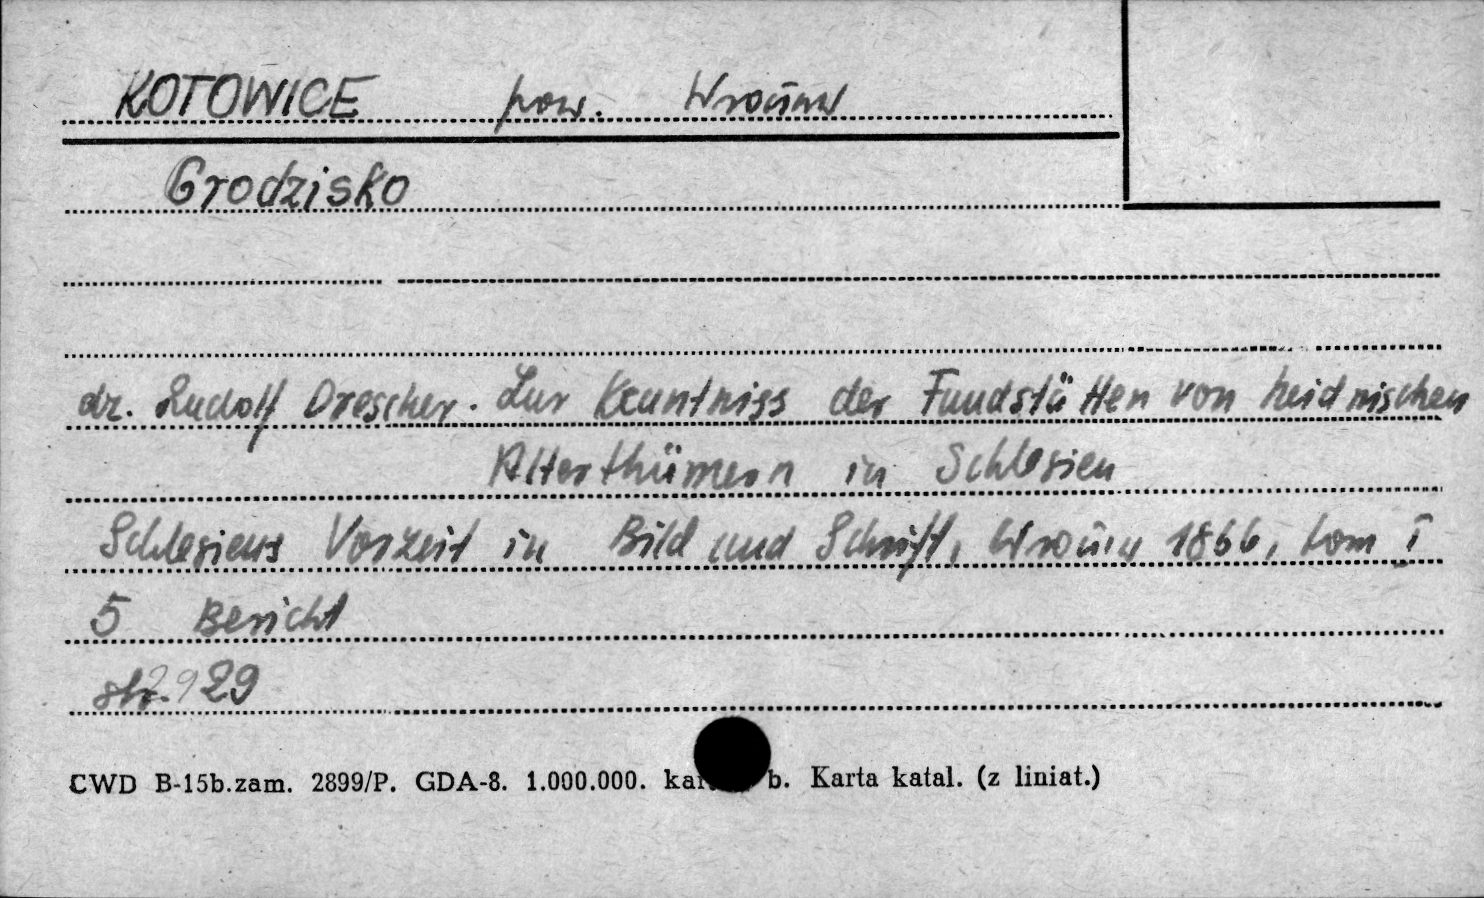 KOTOWICE pow. Wrocław
Grodzisko
dr. Rudolf Drescher. Zur Kenntniss der Fundstätten von heidnischen
Alterthümern in Schlesien
Schlesiens Vorzeit in Bild und Schrift, Wrocław 1866, tom I
5 Bericht
str. 29
CWD B-15b.zam. 2899/P. GDA-8. 1.000.000. b. Karta katal. (z liniat.)